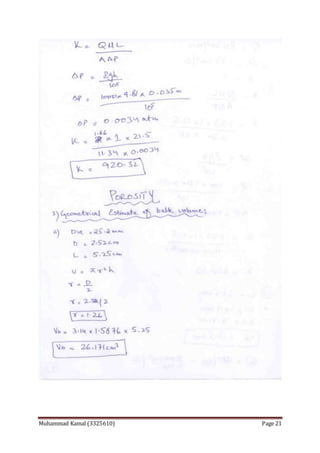 K = QML
AΔP
ΔP = ρgh
10⁵
ΔP = 1000 x 9.81 x 0.035m
10⁵
ΔP = 0.0034 atm
1.86
K = x 1 x 21.5
11.34 x 0.0034
K = 920.32
POROSITY
3) Geometrical Estimate of bulk volume:
a) Dia = 25.2mm
D = 2.52cm
L = 5.25cm
V = πr²h
r = D
2
r = 2.52/2
r = 1.26
Vb = 3.14 x 1.5876 x 5.25
Vb = 26.171cm³
Muhammad Kamal (3325610) Page 21